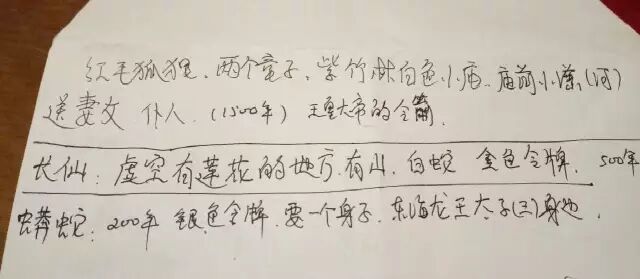 红毛狐狸、两个童子、紫竹林白色小庙、庙前小潭、(河)
送妻女 仆人、(1500年) 玉皇大帝的令箭
长仙:虚空有莲花的地方、有山、白蛇 金色令牌、500年
蟒蛇:200年 银色令牌、要一个身子、东海龙王太子(三)身边、